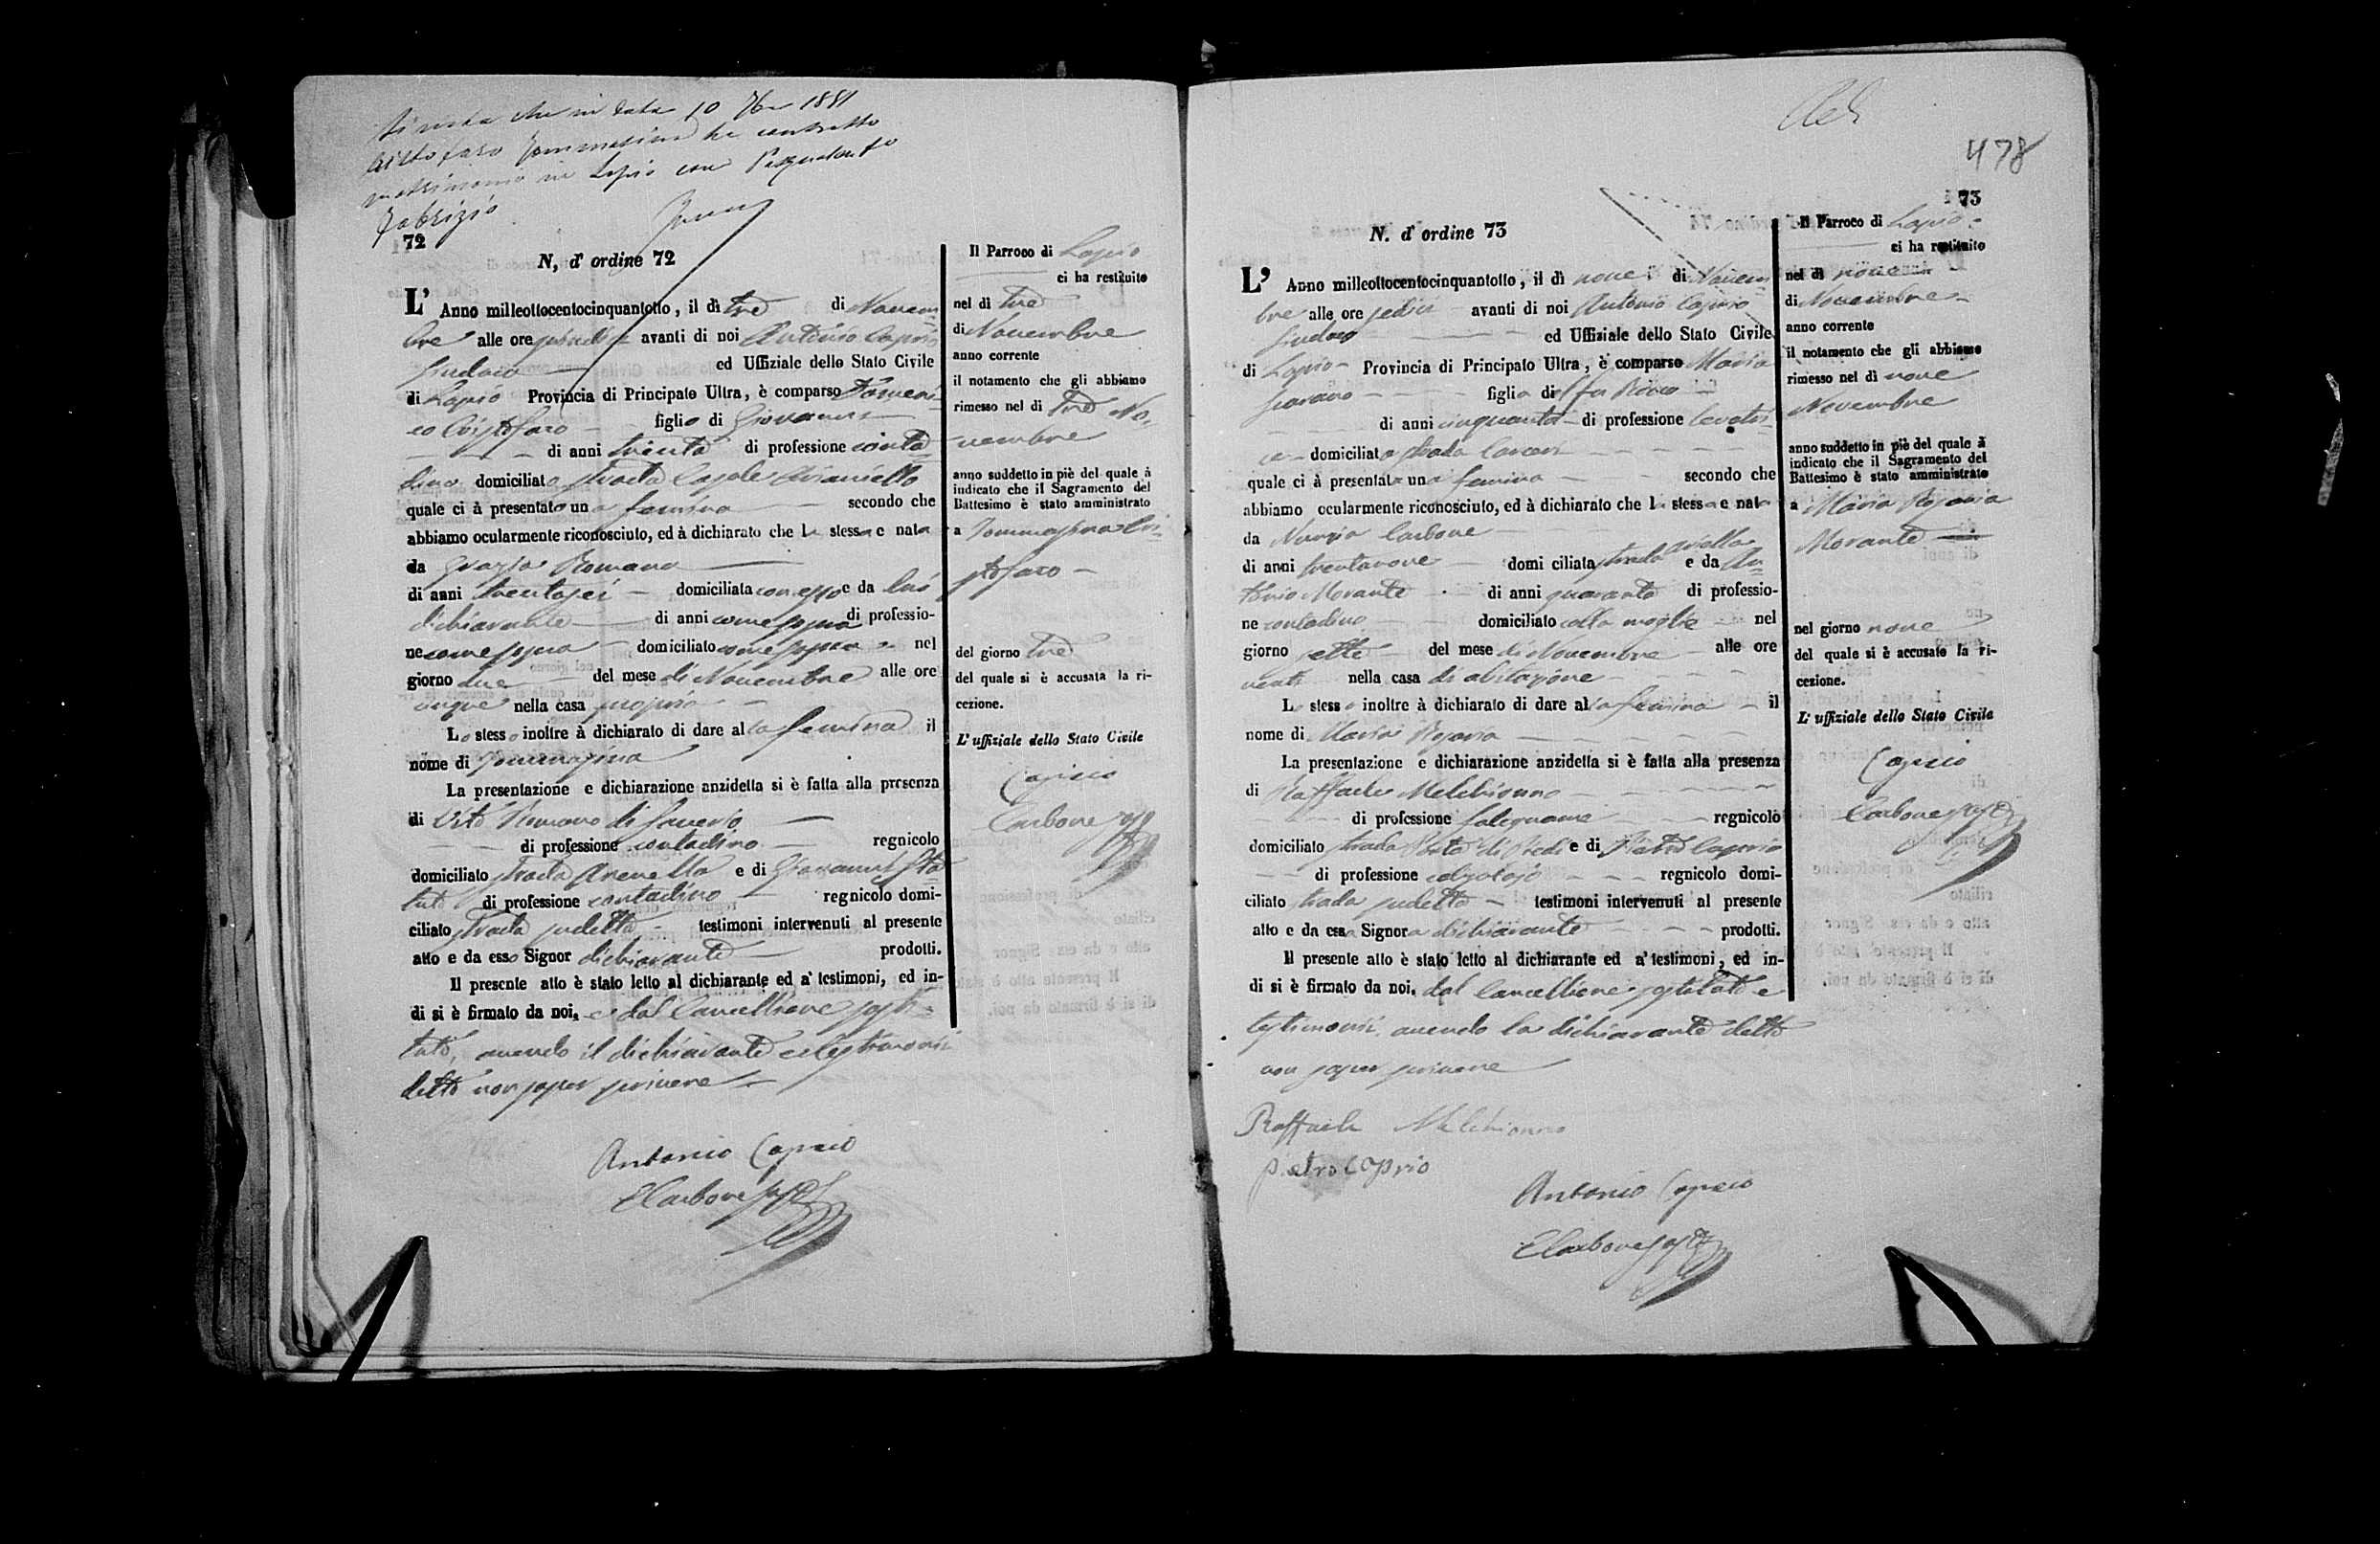 Si nota che in data 10 7bre 1881
Cristofaro Tommasina ha contratto
matrimonio in Lapio con Pasqualento
Fabrizio
72
N, d' ordine 72
L' Anno millottocentocinquantotto, il dì tre di Novem
bre alle ore avanti di noi Antonio Caprio
Sindaco ed Uffiziale dello Stato Civile
di Lapio Provincia di Principato Ultra, è comparso Domeni-
co Cristofaro figlio di Giovanni
di anni trenta di professione conta
dino domiciliato strada Casale
quale ci à presentato una femina secondo che
abbiamo ocularmente riconosciuto, ed à dichiarato che la stessa e nata
da Grazia Romano
di anni trentasei domiciliata con esso e da lui
dichiarante di anni come sopra di professio-
ne come sopra domiciliato come sopra nel
giorno due del mese di Novembre alle ore
cinque nella casa propria
Lo stesso inoltre à dichiarato di dare alla femina il
nome di Tommasina
La presentazione e dichiarazione anzidetta si è fatta alla presenza
di Vito Romano di Saverio
di professione contadino regnicolo
domiciliato strada Arenella e di Giovanni Sta
tuto di professione contadino regnicolo domi-
ciliato strada sudetta testimoni intervenuti al presente
atto e da esso Signor dichiarante prodotti.
Il presente atto è stato letto al dichiarante ed a' testimoni, ed in-
di si è firmato da noi, e dal Cancelliere sosti-
tuto, avendo il dichiarante e testimonii
detto non saper scrivere
Antonio Caprio
E Carbone sost
Il Parroco di Lapio
ci ha restituito
nel dì tre
di Novembre
anno corrente
il notamento che gli abbiamo
rimesso nel dì tre No-
vembre
anno suddetto in piè del quale à
indicato che il Sagramento del
Battesimo è stato amministrato
a Tommasina Cri-
stofaro
del giorno tre
del quale si è accusata la ri-
cezione.
L' uffiziale dello Stato Civile
Caprio
Carbone sost
478
73
N. d' ordine 73
L' Anno millottocentocinquantotto, il dì nove di Novem
bre alle ore sedici avanti di noi Antonio Caprio
Sindaco ed Uffiziale dello Stato Civile
di Lapio Provincia di Principato Ultra, è comparso Maria
figlia di fu Rocco
di anni cinquanta di professione levatri-
ce domiciliata strada Carceri
quale ci à presentata una femina secondo che
abbiamo ocularmente riconosciuto, ed à dichiarato che la stessa e nata
da Nunzia Carbone
di anni trentanove domiciliata strada e da An
tonio Morante di anni quaranta di professio-
ne contadino domiciliato colla moglie nel
giorno sette del mese di Novembre alle ore
venti nella casa di abitazione
L stess inoltre à dichiarato di dare alla femina il
nome di Maria Rosaria
La presentazione e dichiarazione anzidetta si è fatta alla presenza
di Raffaele Melchionno
di professione falegname regnicolo
domiciliato strada Porta di Piedi e di Pietro Caprio
di professione calzolajo regnicolo domi-
ciliato strada sudetta testimoni intervenuti al presente
atto e da essa Signora dichiarante prodotti.
Il presente atto è stato letto al dichiarante ed a' testimoni, ed in-
di si è firmato da noi, dal Cancelliere sostituto e
testimonii avendo la dichiarante detto
non saper scrivere
Raffaele Melchionno
Pietro Caprio
Antonio Caprio
E Carbone sost
Il Parroco di Lapio
ci ha restituito
nel dì nove
di Novembre
anno corrente
il notamento che gli abbiamo
rimesso nel dì nove
Novembre
anno suddetto in piè del quale à
indicato che il Sagramento del
Battesimo è stato amministrato
a Maria Rosaria
Morante
nel giorno nove
del quale si è accusata la ri-
cezione.
L' uffiziale dello Stato Civile
Caprio
Carbone sost